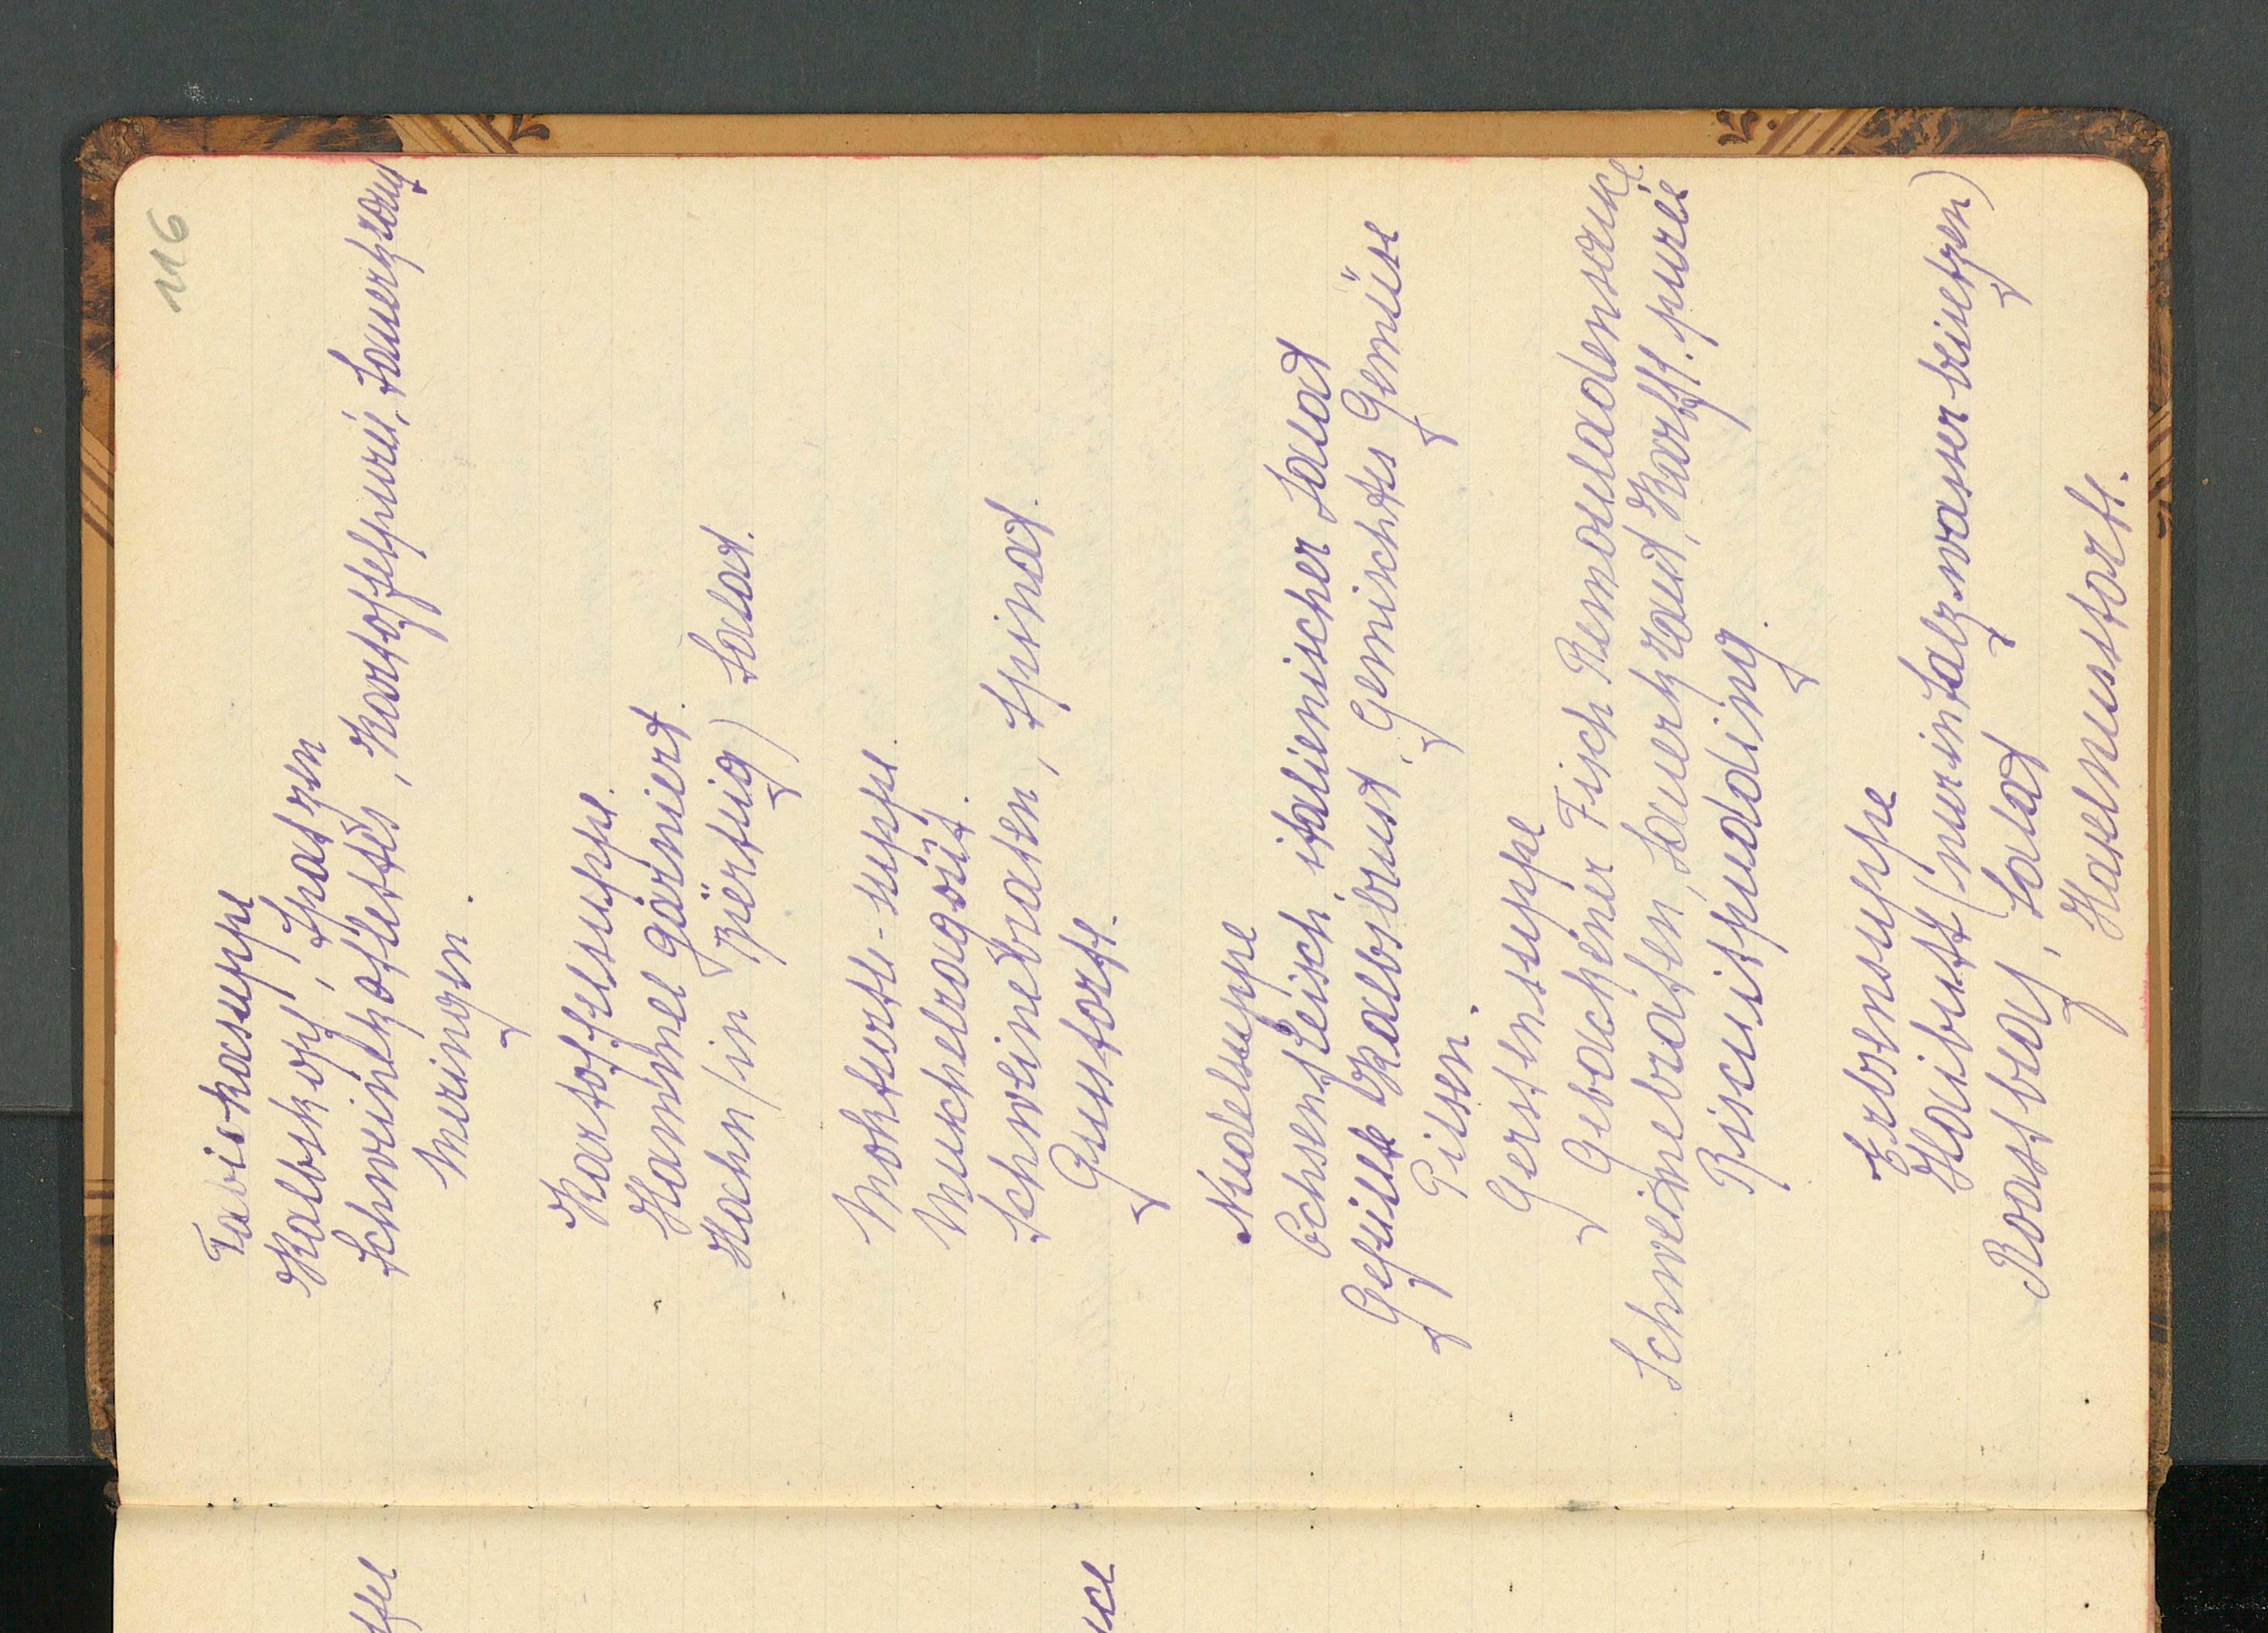 116
Taviokasuppe
Kalbskopf, Spatzen
Schweinskotletts, Kartoffelpureé, Sauerkraut
Meringen.
Kartoffelsuppe.
Hammel garniert.
Hahn (in Bierteig) Salat.
Mokturtle-suppe.
Muschelragoüt.
Schweinebraten, Spinat.
Gusstorte.
Nudelsuppe
Ochsenfleisch, italienischer Salat
Gefüllte Kalbsbrust, Gemischtes Gemüse
Gerstensuppe
Gebackener Fisch Remouladensauce.
Schweinebraten, Sauerkraut, Kartfl. pureé
Biscuitpudding.
Erbsensuppe
Haibutt (nur in Salzwasser beisetzen)
Roastbeaf, Salat
Haselnusstorte.
ffel
uce